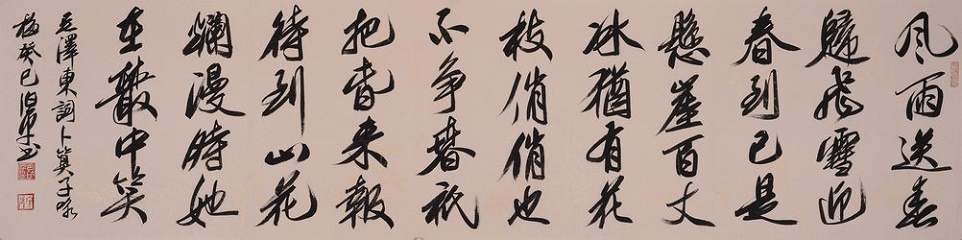 风雨送春
歸飛雪迎
春到已是
懸崖百丈
冰猶有花
枝俏俏也
不争春祇
把春来報
待到山花
爛漫時她
在叢中笑
毛澤東詞卜算子咏
梅癸巳书